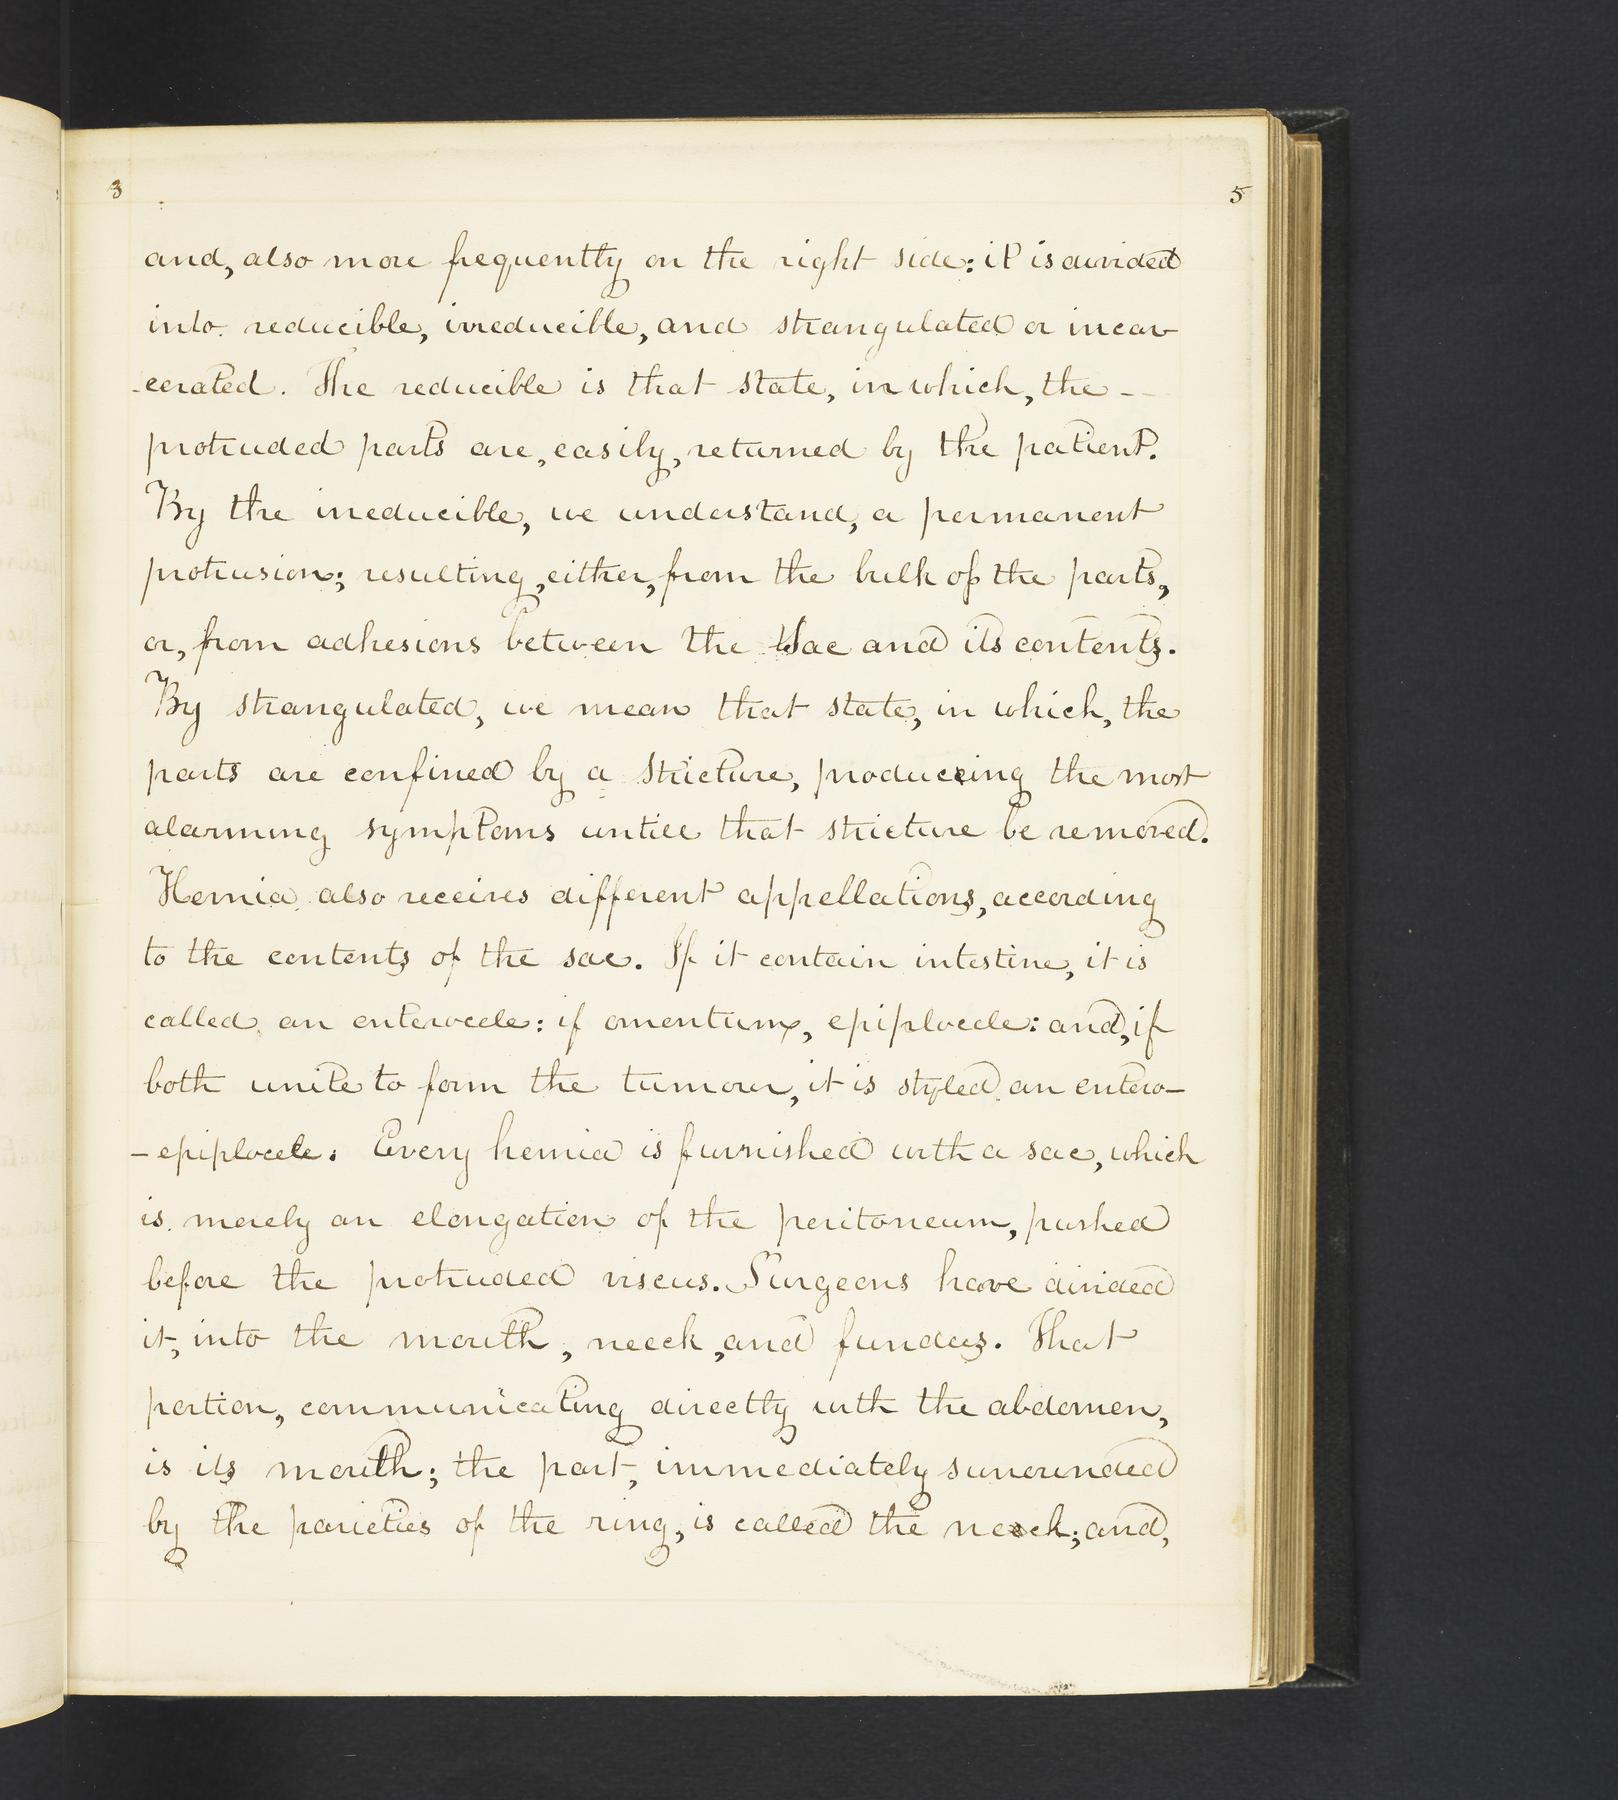 3 5
and, also more frequently on the right side: it is divided
into reducible, irreducible, and strangulated or incar-
-cerated. The reducible is that state, in which, the --
protruded parts are, easily, returned by the patient.
By the irreducible, we understand, a permanent
protrusion; resulting, either, from the bulk of the parts,
or, from adhesions between the Sac and its contents.
By strangulated, we mean that state, in which, the
parts are confined by a stricture, producing the most
alarming symptoms untill that stricture be removed.
Hernia also receives different appellations, according
to the contents of the sac. If it contain intestine, it is
called an enterocele: if omentum, epiplocele: and, if
both unite to form the tumour, it is styled an entero-
-epiplocele. Every hernia is furnished with a sac, which
is merely an elongation of the peritoneum, pushed
before the protruded viscus. Surgeons have divided
it, into the mouth, neeck, and fundus. That
portion, communicating directly with the abdomen,
is its mouth; the part, immediately surrounded
by the parieties of the ring, is called the neck; and,